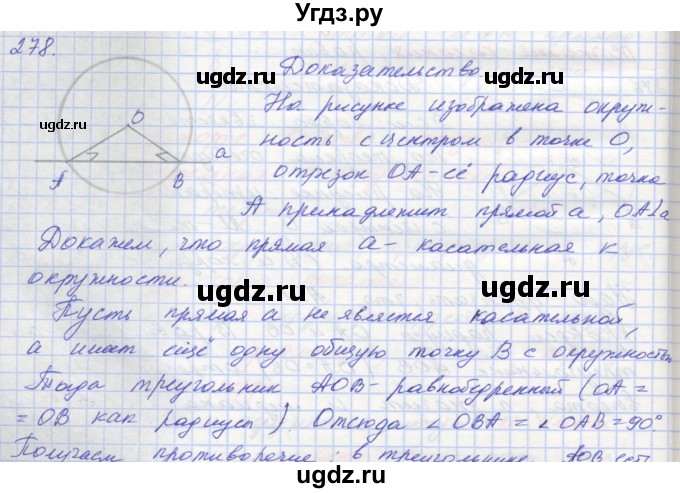 Угдз.ру
278.
Доказательство
O
На рисунке изображена окруж-
ность с центром в точке O,
a
отрезок OA - её радиус, точка
A
B
A принадлежит прямой a, OA⊥a
Докажем, что прямая a - касательная к
окружности.
Пусть прямая a не является касательной,
а имеет ещё одну общую точку B с окружностью
Тогда треугольник AOB - равнобедренный (OA =
= OB как радиусы). Отсюда ∠OBA = ∠OAB = 90°.
Получаем противоречие: в треугольнике AOB есть
ugdz.ru
ugdz.ru
ugdz.ru
ugdz.ru
ugdz.ru
ugdz.ru